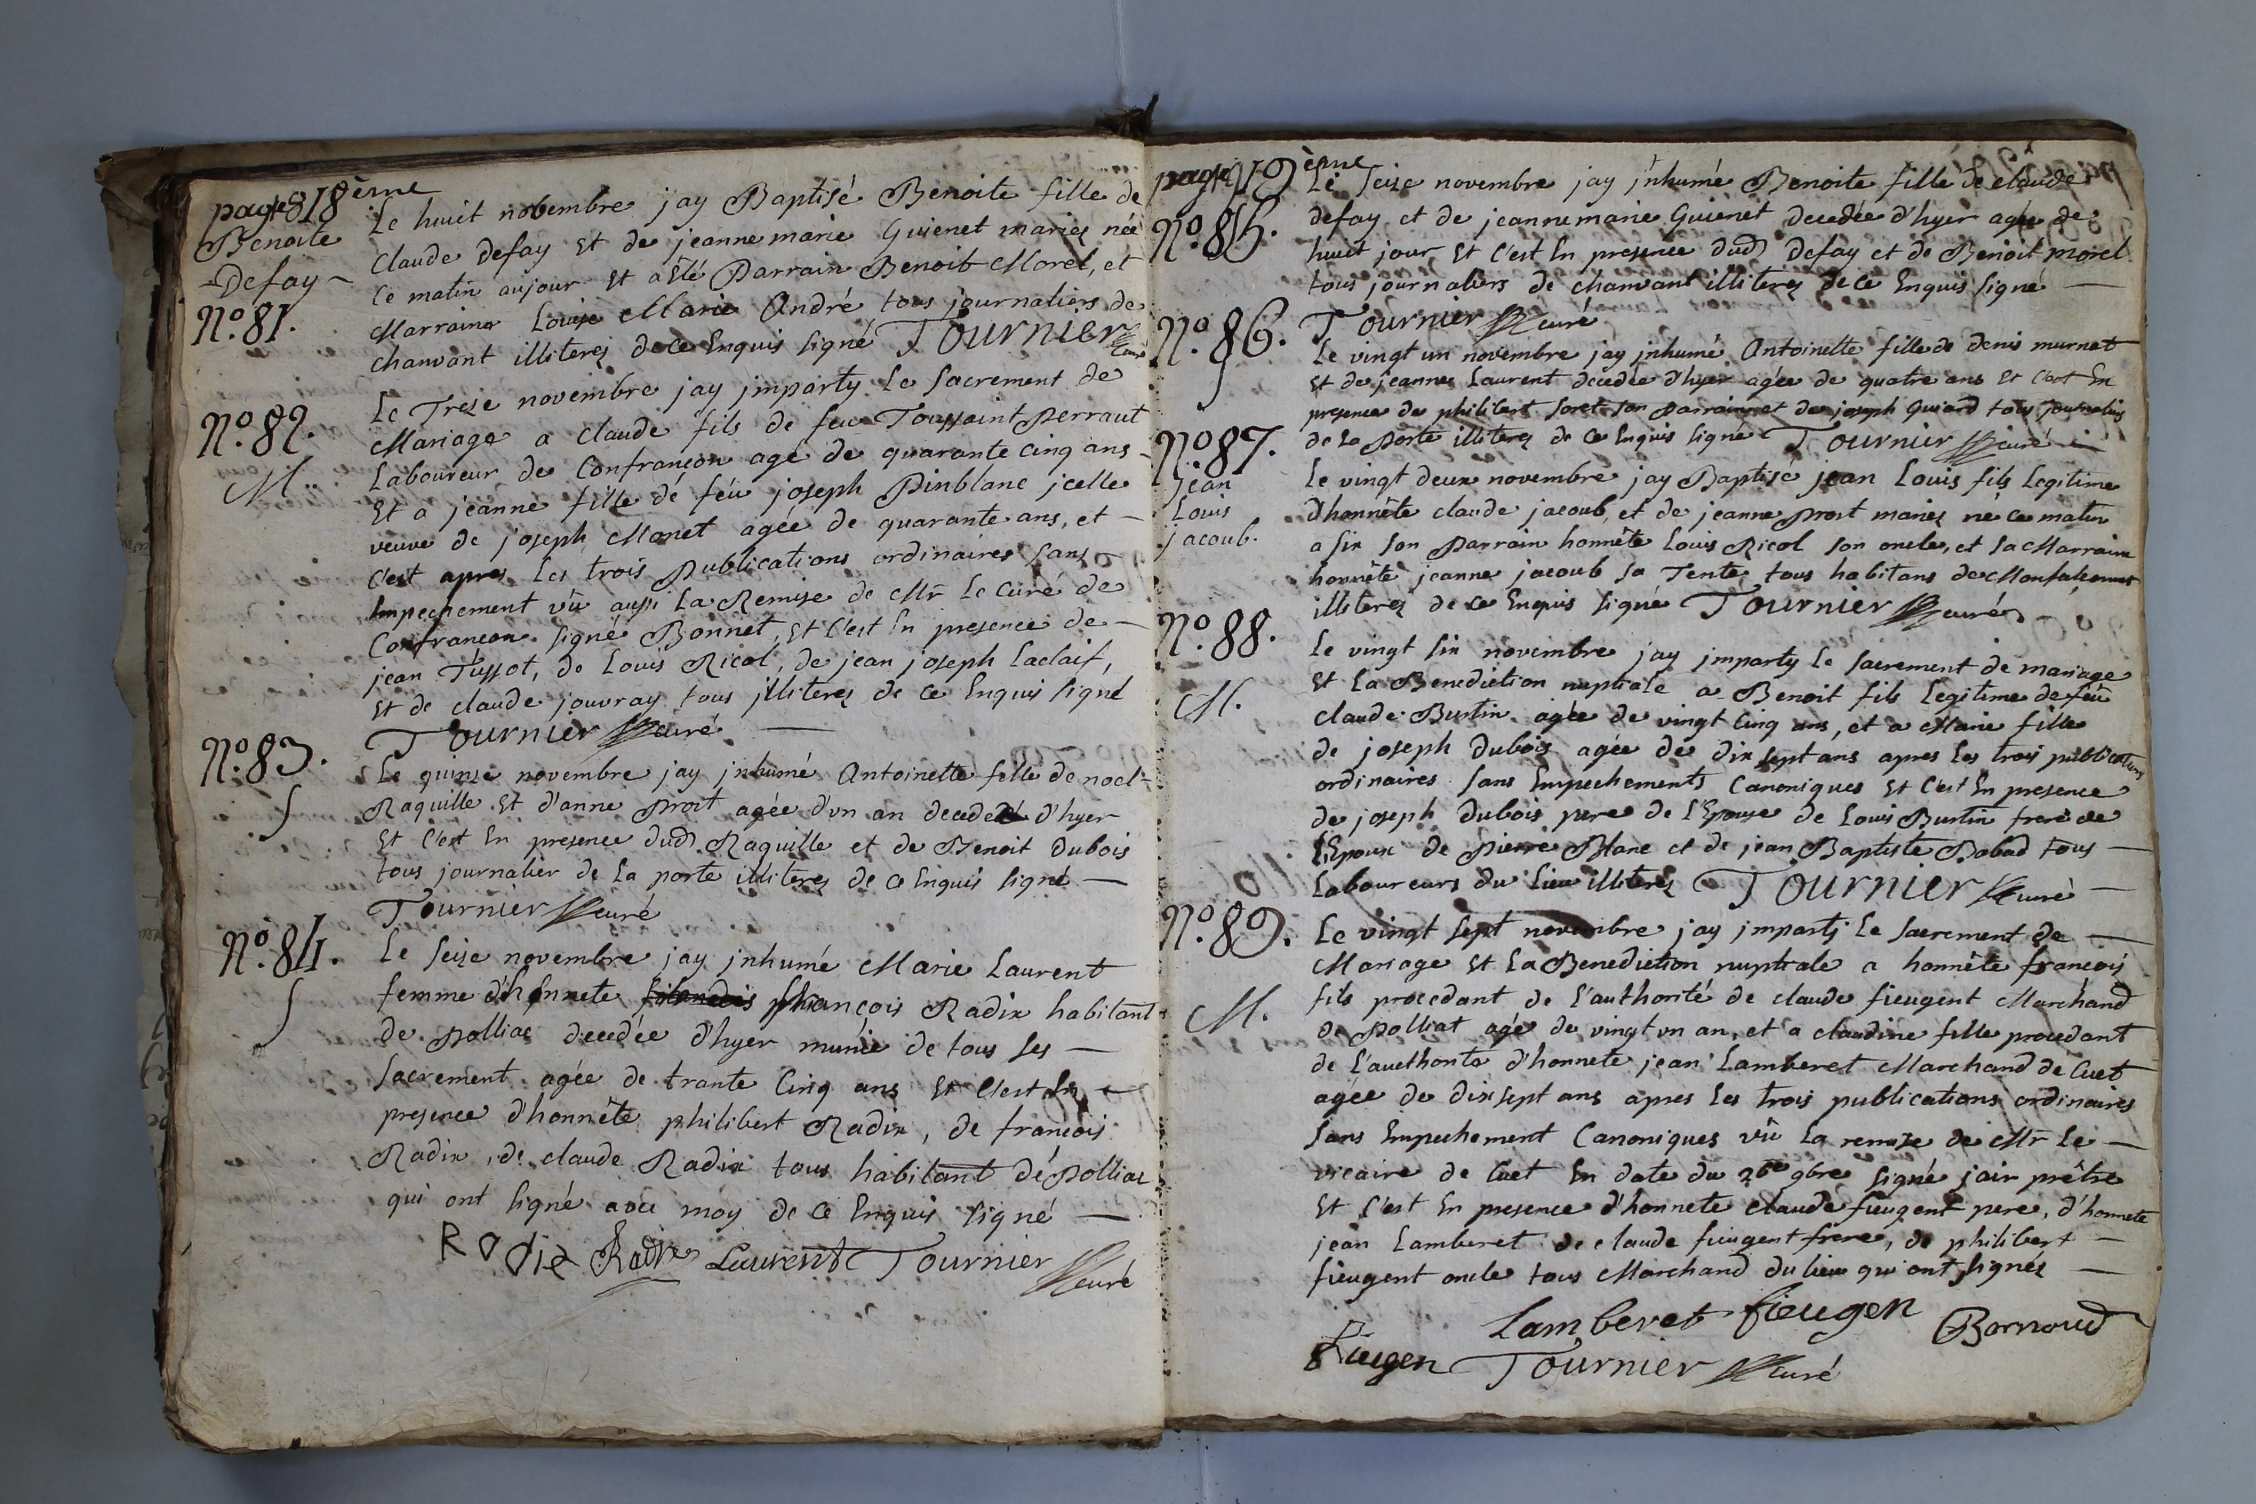 page 18ème
Benoite
Defay
N.º 81.
Le huit novembre jay Baptisé Benoite fille de
Claude Defay Et de jeanne marie Guienet mariez née
Ce matin aujour Et a Été Parrain Benoit Morel, et
Marraine Louise Marie André tous journaliers de
chanvant illiterez de ce Enquis signé Tournier curé
N.º 82.
M.
Le Treze novembre jay jmparty Le Sacrement de
Mariage a claude fils de feu Toussaint Perraut
Laboureur de Confrançon agé de quarante cinq ans
Et a jeanne fille de féu joseph Pinblanc jcelle
veuve de joseph Monet agée de quarante ans, et
C'est apres Les trois Publications ordinaires sans
Empechement vû aussi La Remise de Mr Le Curé de
Confrancon signé Bonnet, Et C'est En presence de
jean Tussot, de Louis Ricol, de jean joseph Laclaif,
Et de claude jouvray tous jlliterez de ce Enquis signé
Tournier curé
N.º 83.
S
Le quinze novembre jay jnhumé Antoinette fille de noel
Raquille Et d'anne Prost agée d'un an decedé d'hyer
Et C'est En presence dud Raquille et de Benoit Dubois
tous journalier de La porte illiterez de ce Enquis signé
Tournier curé
N.º 84.
S
Le Seize novembre jay jnhumé Marie Laurent
femme d'honnete françois Radix habitant
de Polliac decedée d'hyer munie de tous ses
Sacrement agée de trante Cinq ans Et C'est En
presence d'honnête philibert Radix, de françois
Radix, de claude Radix tous habitant de Polliac
qui ont signé avec moy de ce Enquis signé
Radix Radix Laurent Tournier
curé
page 19ème
N.º 85.
Le Seize novembre jay jnhumé Benoite fille de claude
defay et de jeanne marie Guienet decedée d'hyer agée de
huit jour, Et C'est En presence dud Defay et de Benoit morel
tous journaliers de chanvant illiterez de ce Enquis signé
Tournier curé
N.º 86.
S
Le vingt un novembre jay jnhumé Antoinette fille de denis murnet
Et de jeanne Laurent decedée d'hyer agée de quatre ans Et C'est En
presence de philibert foret son parrain et de joseph Guiard tous journaliers
de La Porte illiterez de Ce Enquis signé Tournier curé
N.º 87.
Jean
Louis
jacoub.
Le vingt deux novembre jay Baptisé jean Louis fils Legitime
d'honnête claude jacoub, et de jeanne Prost mariez né ce matin
a six son Parrain honnête Louis Ricol son oncle, et sa Marraine
honnête jeanne jacoub sa Tente tous habitans de Monfalconnet
illiterez de ce Enquis signé Tournier curé
N.º 88.
M.
Le vingt six novembre jay jmparty Le sacrement de mariage
Et La Benediction nuptiale a Benoit fils Legitime de feu
Claude Burtin agée de vingt Cinq ans, et a Marie fille
de joseph Dubois agée de dix sept ans apres Les trois publications
ordinaires sans Empechements Canoniques Et C'est En presence
de joseph Dubois pere de l'Epouse de Louis Burtin frere de
L'Epoux de Pierre Blanc et de jean Baptiste Babad tous
Laboureurs du Lieu illiterez Tournier curé
N.º 89.
M.
Le vingt sept novembre jay jmparti Le sacrement de
Mariage Et La Benediction nuptiale a honnête françois
fils procedant de l'authorité de claude fieugent Marchand
de Polliat agé de vingt un an, et a claudine fille procedant
de L'aucthorite d'honnete jean Lamberet Marchand de Cuet
agée de dix sept ans apres Les trois publications ordinaires
sans Empechement Canoniques vû La remize de Mr Le
vicaire de Cuet En date du 26e 9bre signé jair prêtre
Et C'est En presence d'honnete claude fieugent pere, d'honnete
jean Lamberet de claude fieugent frere, de philibert
fieugent oncle tous Marchand du lieu qui ont signés
Lamberet fieugen Bornoud
fieugen Tournier curé